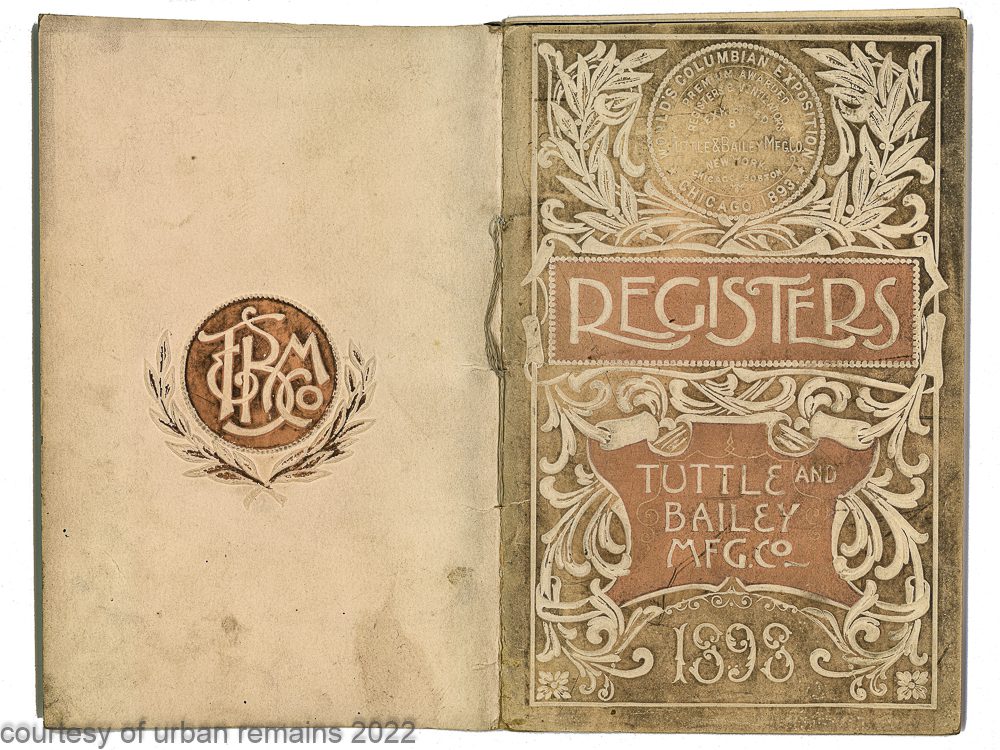 T & B M
Co
WORLD'S COLUMBIAN EXPOSITION
PREMIUM AWARDED
REGISTERS
EXHIBITED
BY
TUTTLE & BAILEY MFG. CO.
NEW YORK
CHICAGO BOSTON
CHICAGO 1893
REGISTERS
TUTTLE AND
BAILEY
MFG. CO
1898
courtesy of urban remains 2022